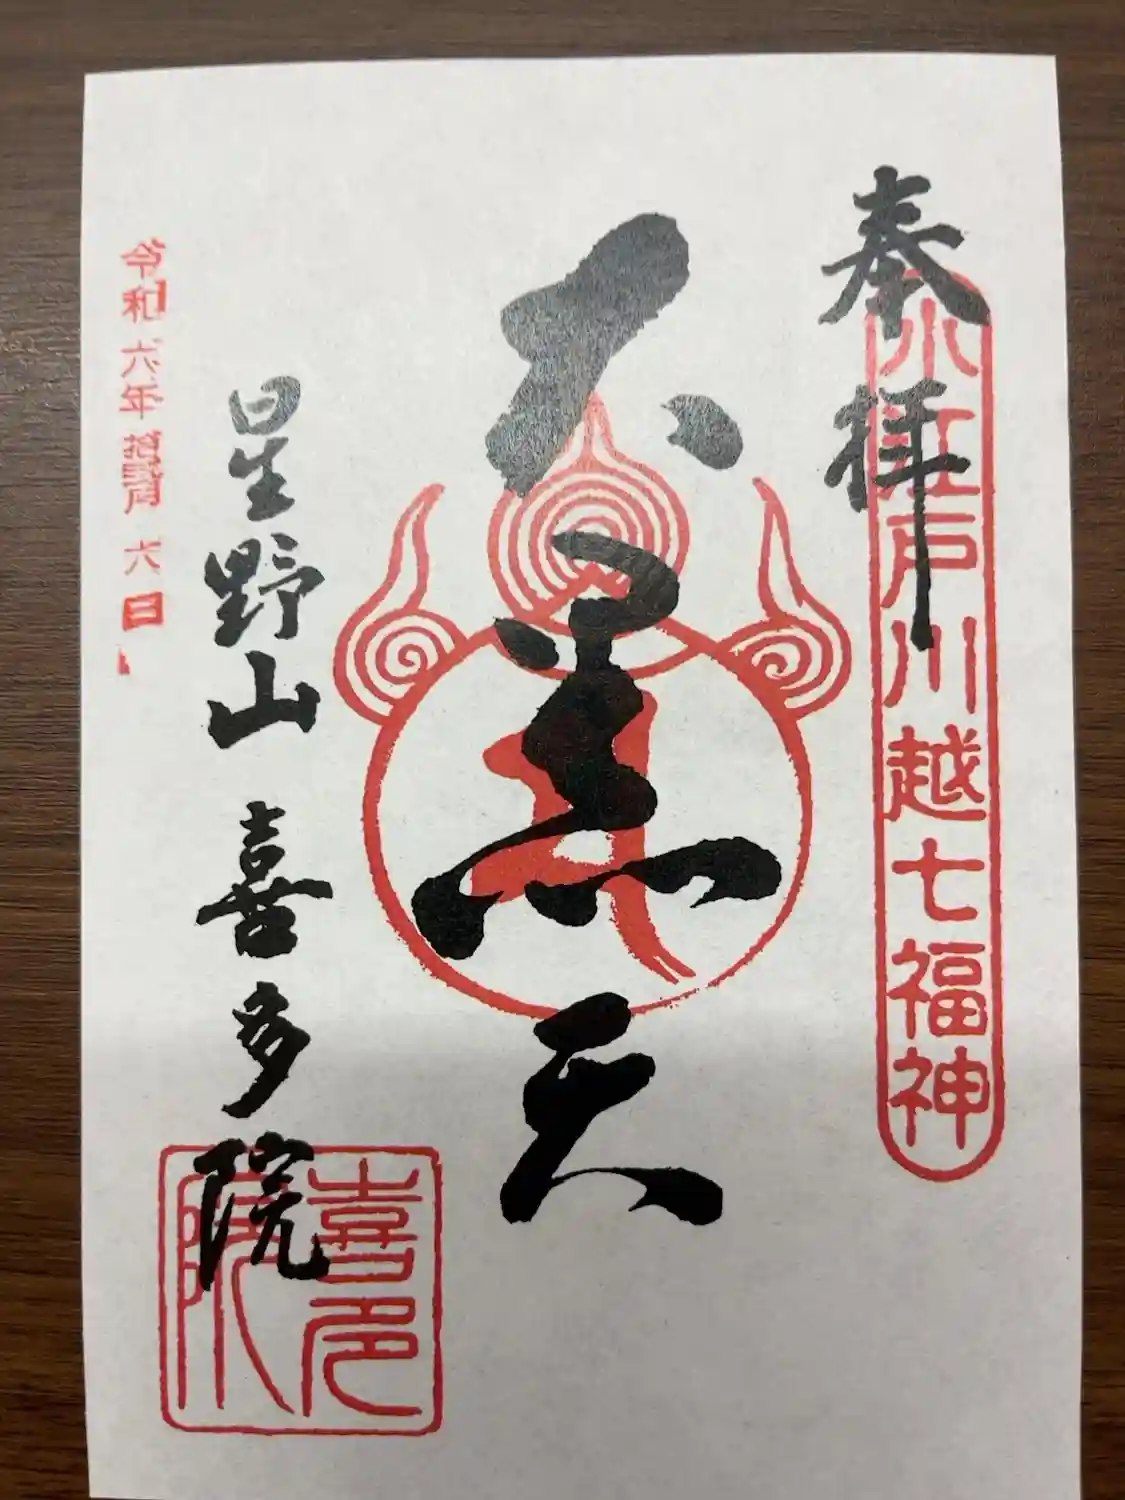 奉拝
小江戸川越七福神
大黒天
星野山 喜多院
喜多院
令和六年拾弐月 六日